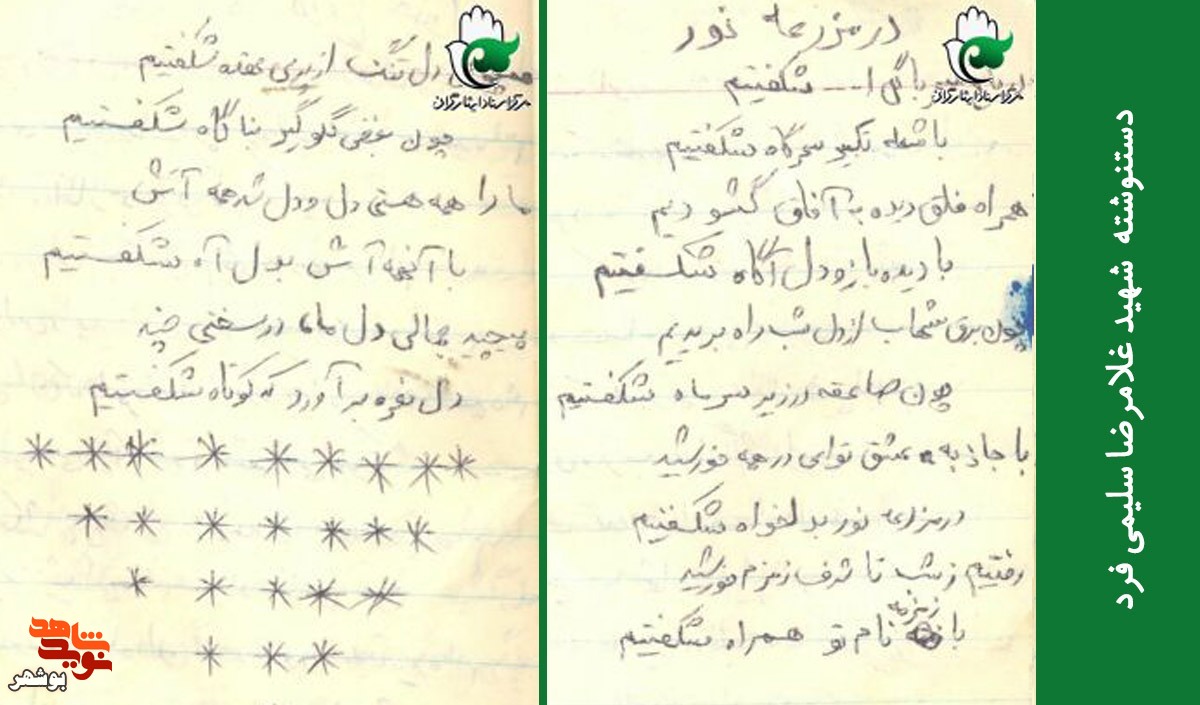 در مزرعه نور
با گل ا... شکفتیم
با شعله تکبیر سحرگاه شکفتیم
همراه فلق دیده به آفاق گشودیم
با دیده باز و دل آگاه شکفتیم
چون برق شهاب از دل شب راه بریدیم
چون صاعقه در زیر سر ماه شکفتیم
با جاذبه عشق تو ای در همه خورشید
در مزرعه نور بدلخواه شکفتیم
رفتیم ز شب تا شرف زمزم خورشید
با زمزمه نام تو همراه شکفتیم
دل تنگ از پس عقده شکفتیم
چون بغضی گلوگیر بناگاه شکفتیم
ما را همه هستی دل و دل شد همه آتش
با آنهمه آتش بدل آه شکفتیم
پیچید دل ما، در سخنی چند
دل نعره برآورد که کوتاه شکفتیم
دستنوشته شهید غلامرضا سلیمی فرد
مرکز اسناد ایثارگران
مرکز اسناد ایثارگران
نوید شاهد
بوشهر